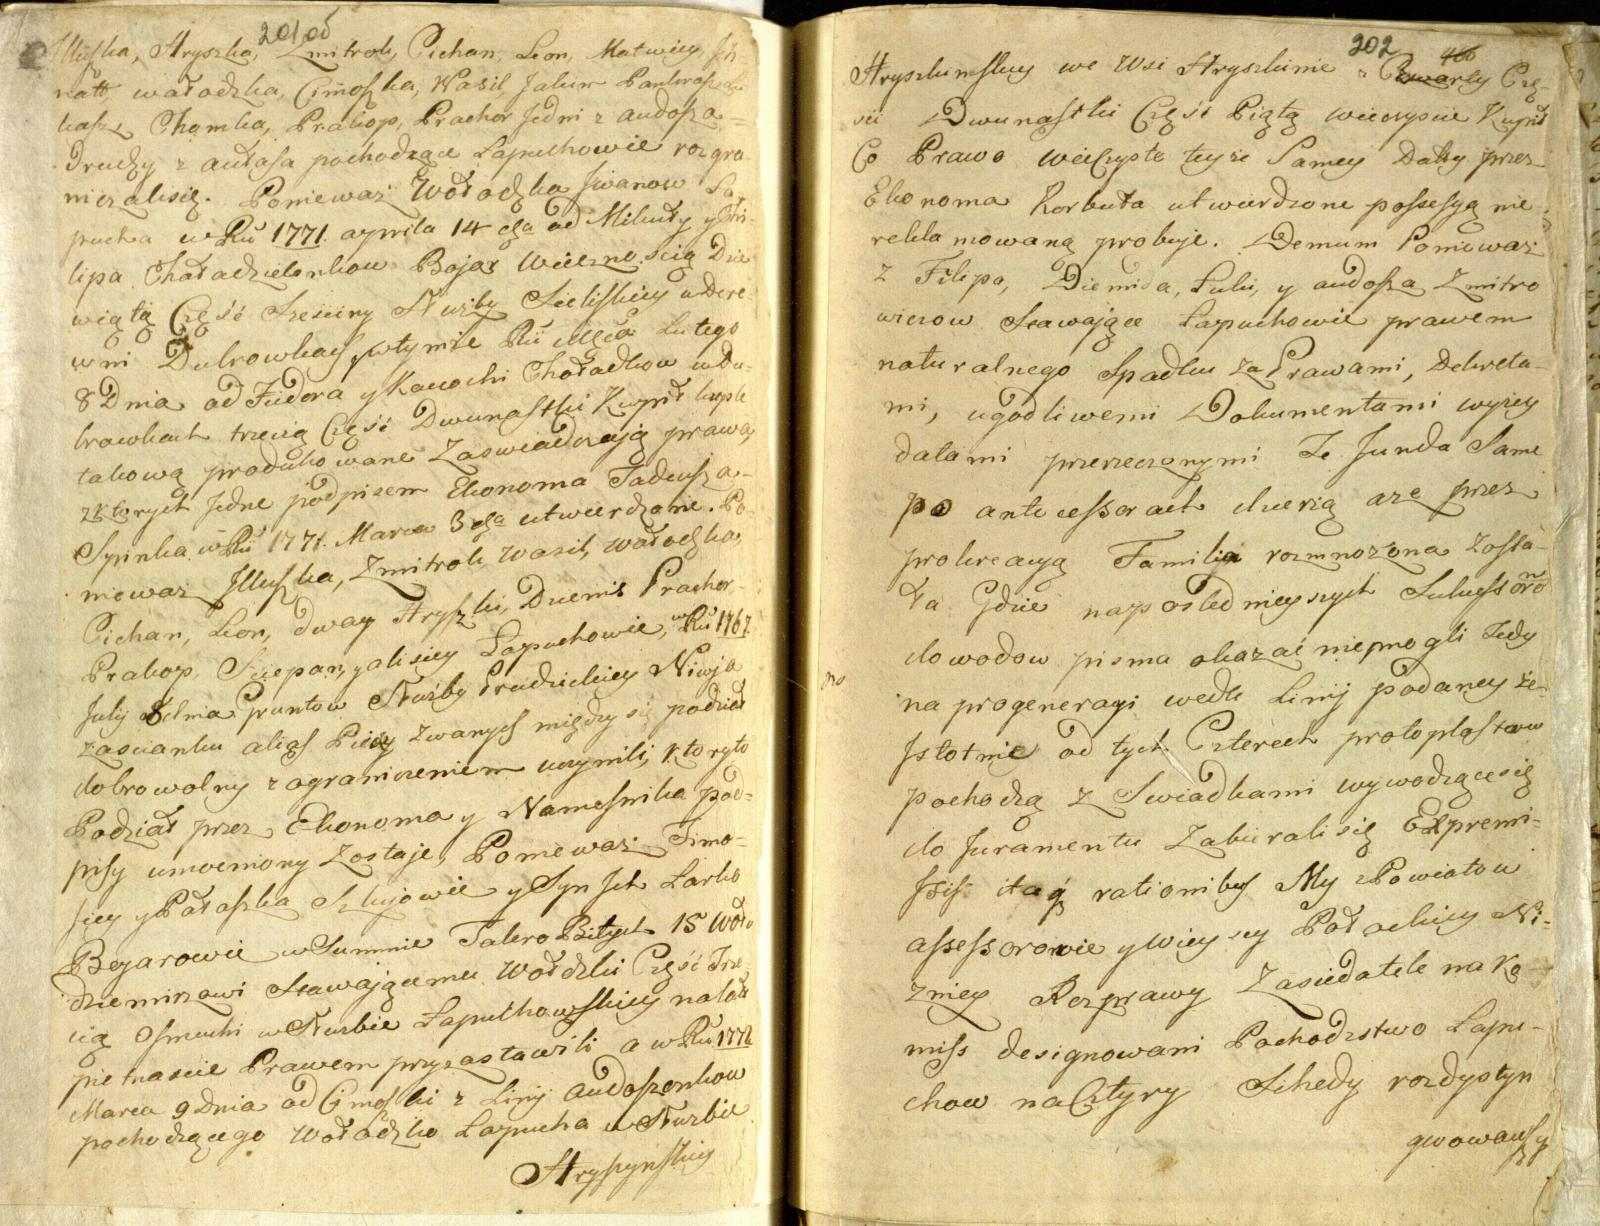 201 об
Illuszka, Hryszka, Zmitrok, Cichan, Leon, Matwiey, Ih-
natt wałodzka, Cimoszka, Wasil, Jakim Pankrasz
kasz, Chomka, Prakop, Prachor Jedni z audosza =
drudzy z aułasa pochodzące Łapuchowie rozgra-
niczalisię. Ponieważ Wołodzka Iwanow Ła-
pucha w Rū 1771. apryla 14 dnia od Mikuły y Fili-
lipa Chaładzelonkow Bojar wiecznoscią Dzie-
wiątą Częsć Szesciny Służby Sieliskiey w dere-
wni Dubrowkach, w tymże Rū Msca Lutego
8 Dnia od Fudora y Kanochi Chaładkow w Du-
browkach trzecią Częsć Dwunastki Kupił kuple
takową produkowane Zaswiadczają prawa,
z ktorych Jedne podpisem Ekonoma Tadeusza =
Sypinka w Rū 1771. Marca 3 dnia utwierdzone. Po-
nieważ Illuszka, Zmitrok, Wasil, wałodzka,
Cichan, Leon, dway Hryszki, Dzemid Prachor,
Prakop, Szczepan, y alisiey Łapuchowie, w Rū 1767.
July 8 dnia Gruntow Służby Prudzickiey Niwja
zascianku alias Piery zwanych między się podział
dobrowolny z ograniczeniem uczynili, ktoryto
Podział przez Ekonoma y Namesnika pod-
pisy umocniony Zostaje, Ponieważ Timo-
fiey y Pałaszka Szkujowie y Syn Ich Larko
Bogarowie w Summie Talero Bitych 15 Woło
dziemirzowi Stawającemu Wołodzki Częsć Trze-
cią Osmuchi w Służbie Łapuchowskiey na lat
pietnascie Prawem przyzastawili a w Rū 1772
Marca 9 Dnia od Cimoszki z Linij audoszonkow
pochodzącego Wołodzko Łapucha w Służbie
Hryszynskiey
202
400
Hryszkunskiey we Wsi Hryszkunie z Czwartey Czę-
sci Dwunastki Częsć Piątą wieczyscie Kupił
Co Prawo wieczyste teyże Samey Daty przez
Ekonoma Korbuta utwierdzone possesyą nie-
reklamowaną probuje. Demum Ponieważ
z Filipa, Diemida, Łuki, y audosza Zmitro
wiczow Stawające Łapuchowie prawem
naturalnego Spadku za Prawami, Dekreta-
mi, ugodliwemi Dokumentami wyżey
datami przerzeczonymi Ze funda Same
po antecessorach dzierżą aże przez
prokreacyą Familia rozmnożona Zosta-
ła Gdzie nayposlednieyszych Sukcessoro
dowodow pisma okazać niemogli Tedy
no
na progeneracyi wedle Linij podaney że-
Istotnie od tych Czterech protoplastow
pochodzą z Swiadkami wywodzącesię
do Juramentu Zabieralisię Expremi-
ssis itaq rationibus My z Powiatow
assessorowie y wieyscy Połockiey Ni-
zniey Rozprawy Zasiedatele na Ko-
miss designowani Pochodzstwo Łapu-
chow na Cztyry Schedy rozdystyn
gwowawszy